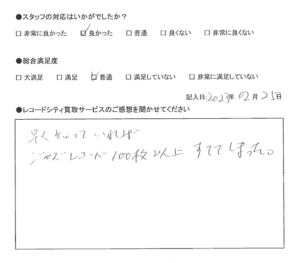 ●スタッフの対応はいかがでしたか？
□非常に良かった ☑良かった □普通 □良くない □非常に良くない
●総合満足度
□大満足 □満足 ☑普通 □満足していない □非常に満足していない
記入日:2023年02月25日
●レコードシティ買取サービスのご感想を聞かせてください
早く知っていれば
ジャズレコード100枚以上 すててしまった。